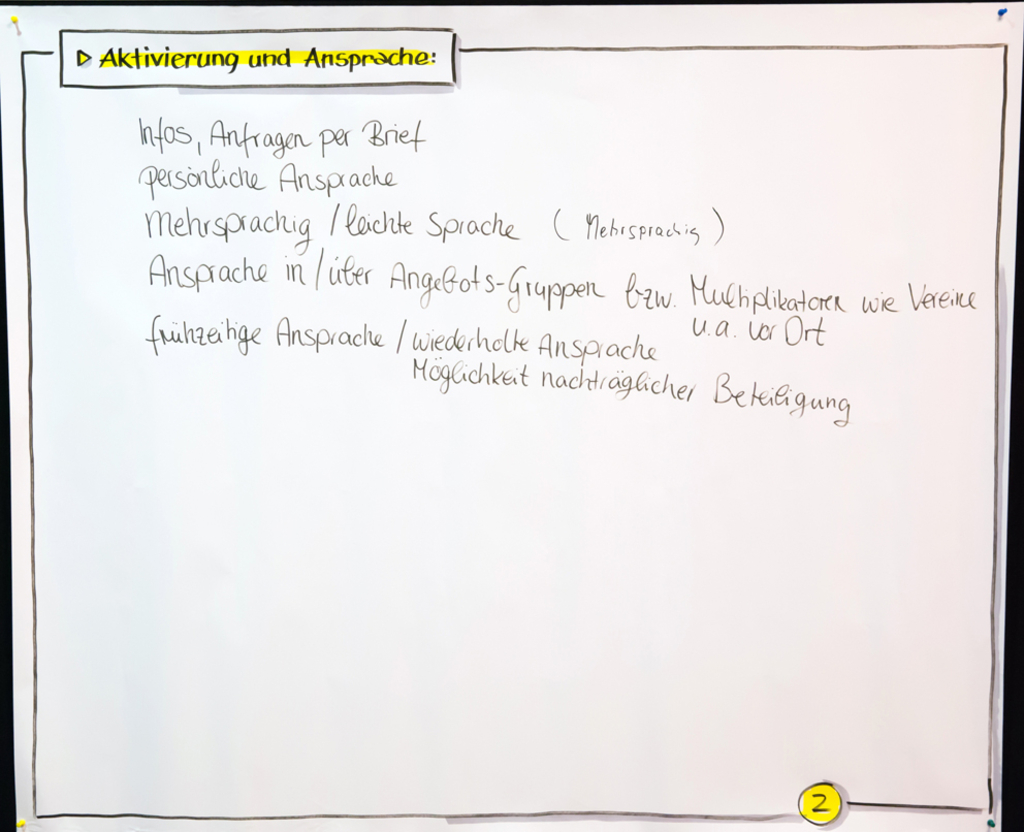 ▷ Aktivierung und Ansprache:
Infos, Anfragen per Brief
persönliche Ansprache
Mehrsprachig / leichte Sprache (Mehrsprachig)
Ansprache in / über Angebots-Gruppen bzw. Multiplikatoren wie Vereine
u.a. vor Ort
frühzeitige Ansprache / wiederholte Ansprache
Möglichkeit nachträglicher Beteiligung
2